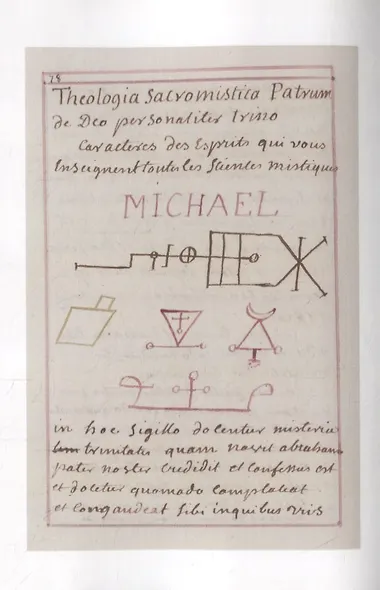 78
Theologia Sacromistica Patrum
de Deo personaliter trino
Caracteres des Esprits qui vous
Enseignent toutes les Sientes mistiques
MICHAEL
in hoc Sigillo docentur misteria
trinitatis quam novit abraham
pater noster Credidit et confessus est
et docetur quomodo complaceat
et congaudeat sibi in quibus vris